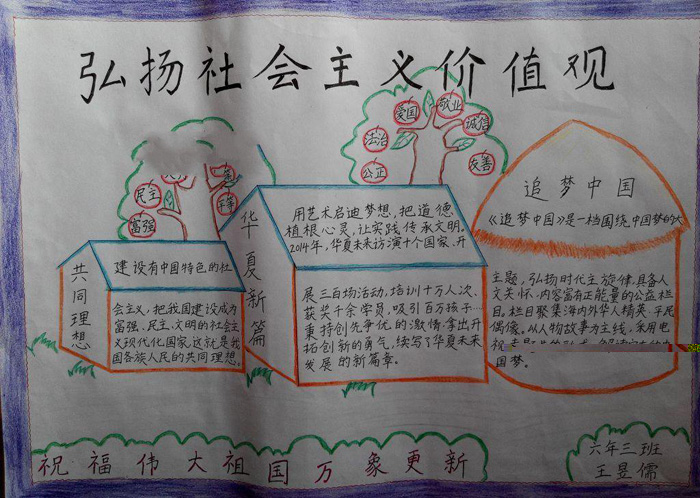 弘扬社会主义价值观
爱国
敬业
诚信
法治
友善
公正
民主
平等
富强
共同理想
建设有中国特色的社
会主义，把我国建设成为
富强、民主、文明的社会主
义现代化国家，这就是我
国各族人民的共同理想。
华夏新篇
用艺术启迪梦想，把道德
植根心灵，让实践传承文明。
2014年，华夏未来访演十个国家，开
展三百场活动，培训十万人次、
获奖千余学员，吸引百万孩子…
秉持创先争优的激情，拿出开
拓创新的勇气，续写了华夏未来
发展的新篇章。
追梦中国
《追梦中国》是一档围绕中国梦的大
主题，弘扬时代主旋律，具备人
文关怀、内容富有正能量的公益栏
目，栏目聚集海内外华人精英、平民
偶像。从人物故事为主线，采用电
国梦。
祝福伟大祖国万象更新
六年三班
王昱儒